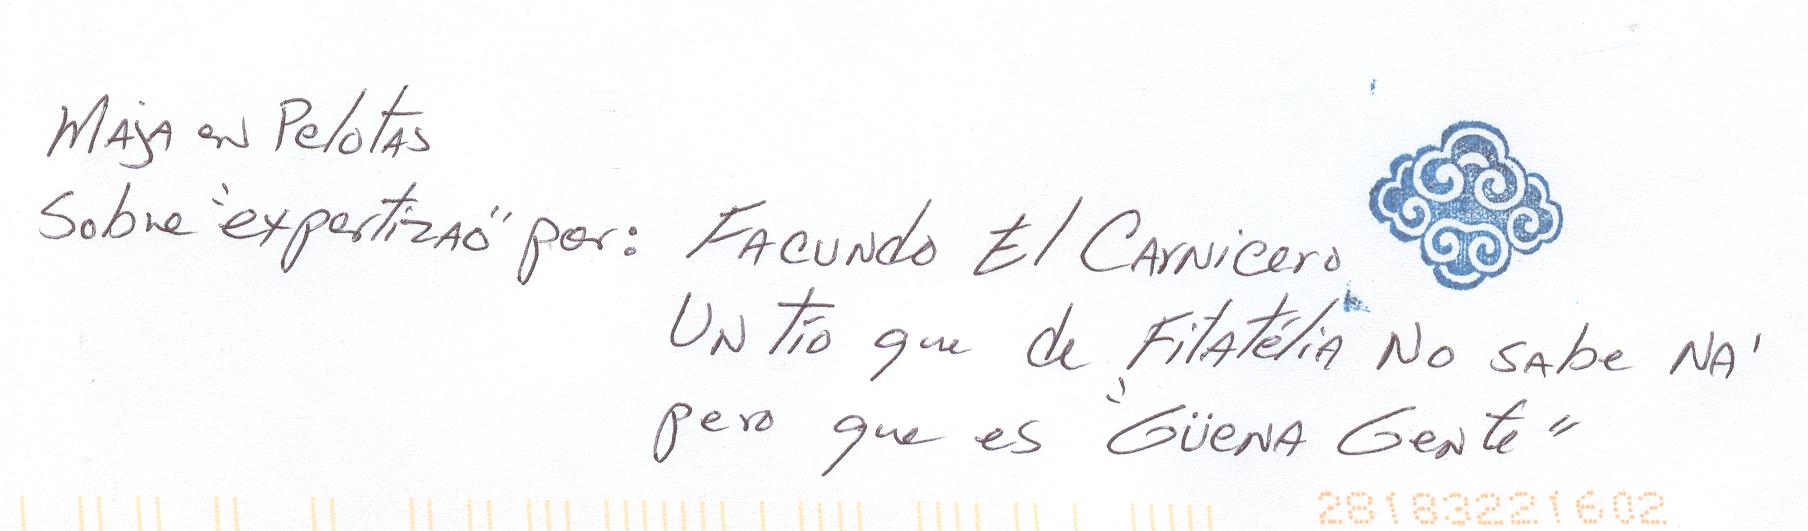 Maja en Pelotas
Sobre "expertizao" por: Facundo El Carnicero
Un tío que de Filatélia No sabe NA'
pero que es "Güena Gente"
28183221602